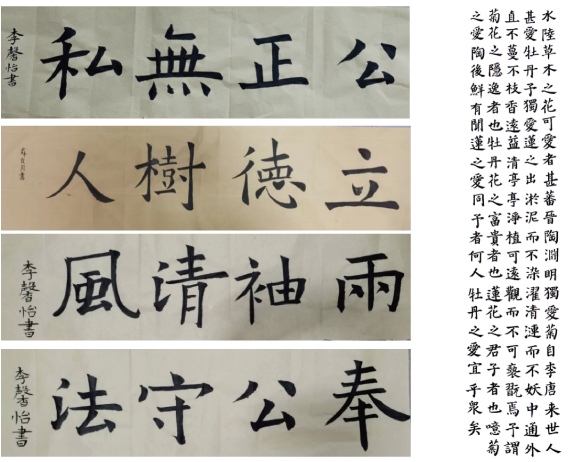 公正無私
李馨怡書
立德樹人
兩袖清風
李馨怡書
奉公守法
李馨怡書
水陸草木之花可愛者甚蕃晉陶淵明獨愛菊自李唐来世人
甚愛牡丹予獨愛蓮之出淤泥而不染濯清漣而不妖中通外
直不蔓不枝香遠益清亭亭淨植可遠觀而不可褻翫焉予謂
菊花之隱逸者也牡丹花之富貴者也蓮花之君子者也噫菊
之愛陶後鮮有聞蓮之愛同予者何人牡丹之愛宜乎衆矣